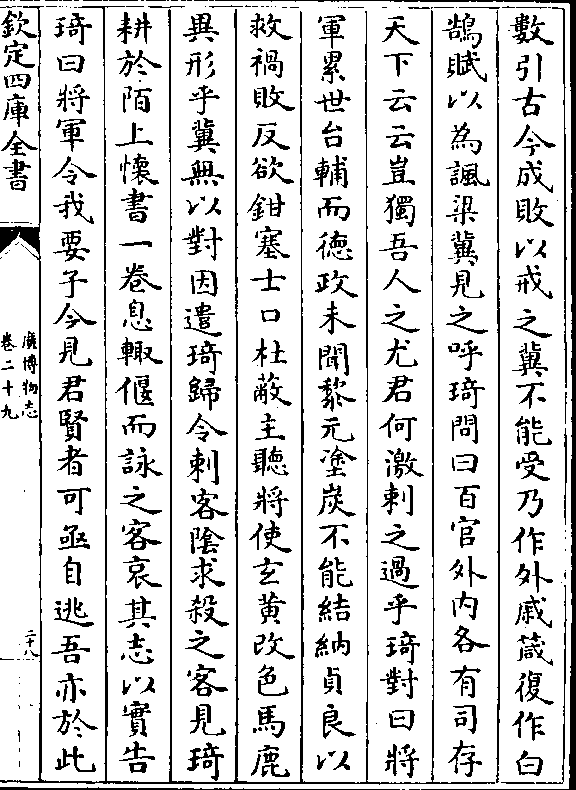 數引古今成敗以戒之冀不能受乃作外戚箴復作白
鵠賦以為諷梁冀見之呼琦問曰百官外内各有司存
天下云云豈獨吾人之尤君何激刺之過乎琦對曰將
軍累世台輔而德政未聞黎元塗炭不能結納貞良以
救禍敗反欲鉗塞士口杜蔽主聽將使玄黄改色馬鹿
異形乎冀無以對因遣琦歸令刺客陰求殺之客見琦
耕於陌上懷書一卷息輙偃而詠之客哀其志以實告
琦曰將軍令我要子今見君賢者可亟自逃吾亦於此
欽定四庫全書
廣博物志
卷二十九
二十八